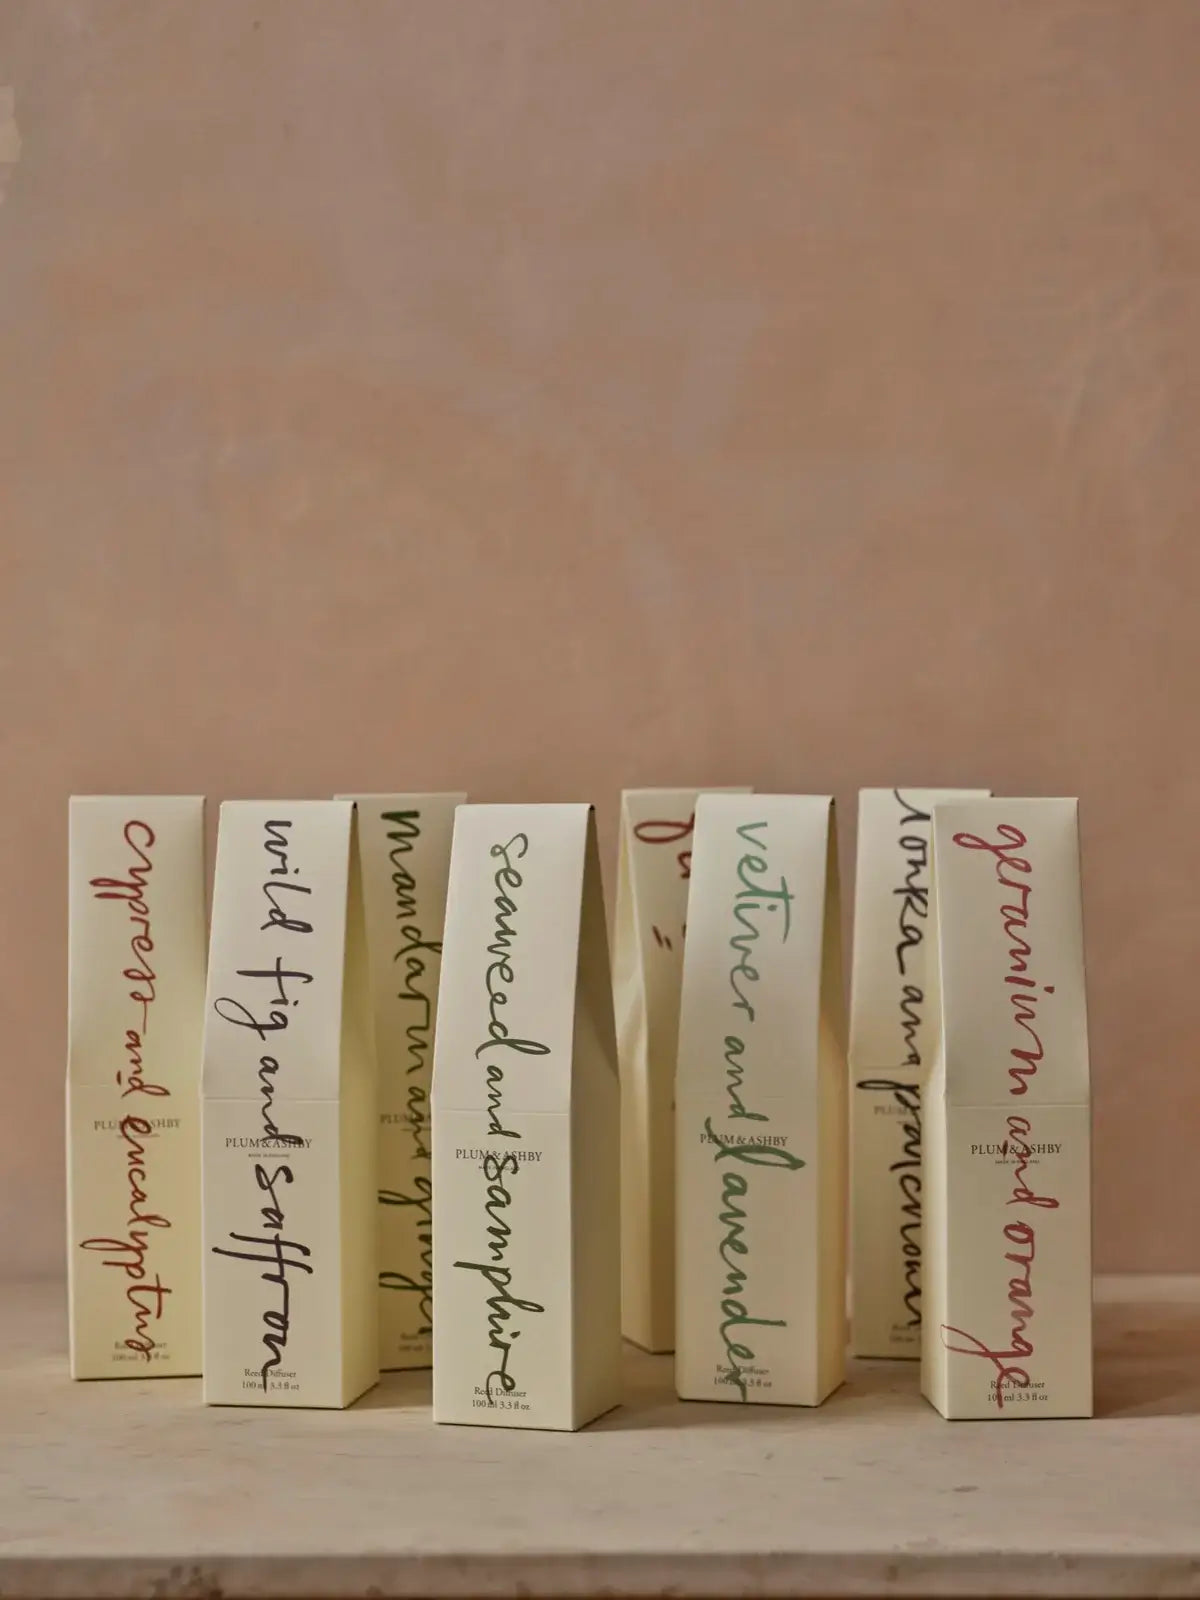 cypress and eucalyptus
PLUM & ASHBY
Reed Diffuser
100 ml 3.3 fl oz
wild fig and saffron
PLUM & ASHBY
MADE IN ENGLAND
Reed Diffuser
100 ml 3.3 fl oz
mandarin and ginger
seaweed and samphire
PLUM & ASHBY
MADE IN ENGLAND
Reed Diffuser
100 ml 3.3 fl oz
vetiver and lavender
PLUM & ASHBY
Reed Diffuser
100 ml 3.3 fl oz
tonka and patchouli
geranium and orange
PLUM & ASHBY
MADE IN ENGLAND
Reed Diffuser
100 ml 3.3 fl oz